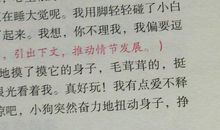 在睡大觉呢。我用脚轻轻碰了小白
了起来。我想，你不理我，我偏要逗
，引出下文，推动情节发展。）
地摸了摸它的身子，毛茸茸的，挺
眼光看着我。真好玩！我有点爱不释
惊吧，小狗突然奋力地扭动身子，挣